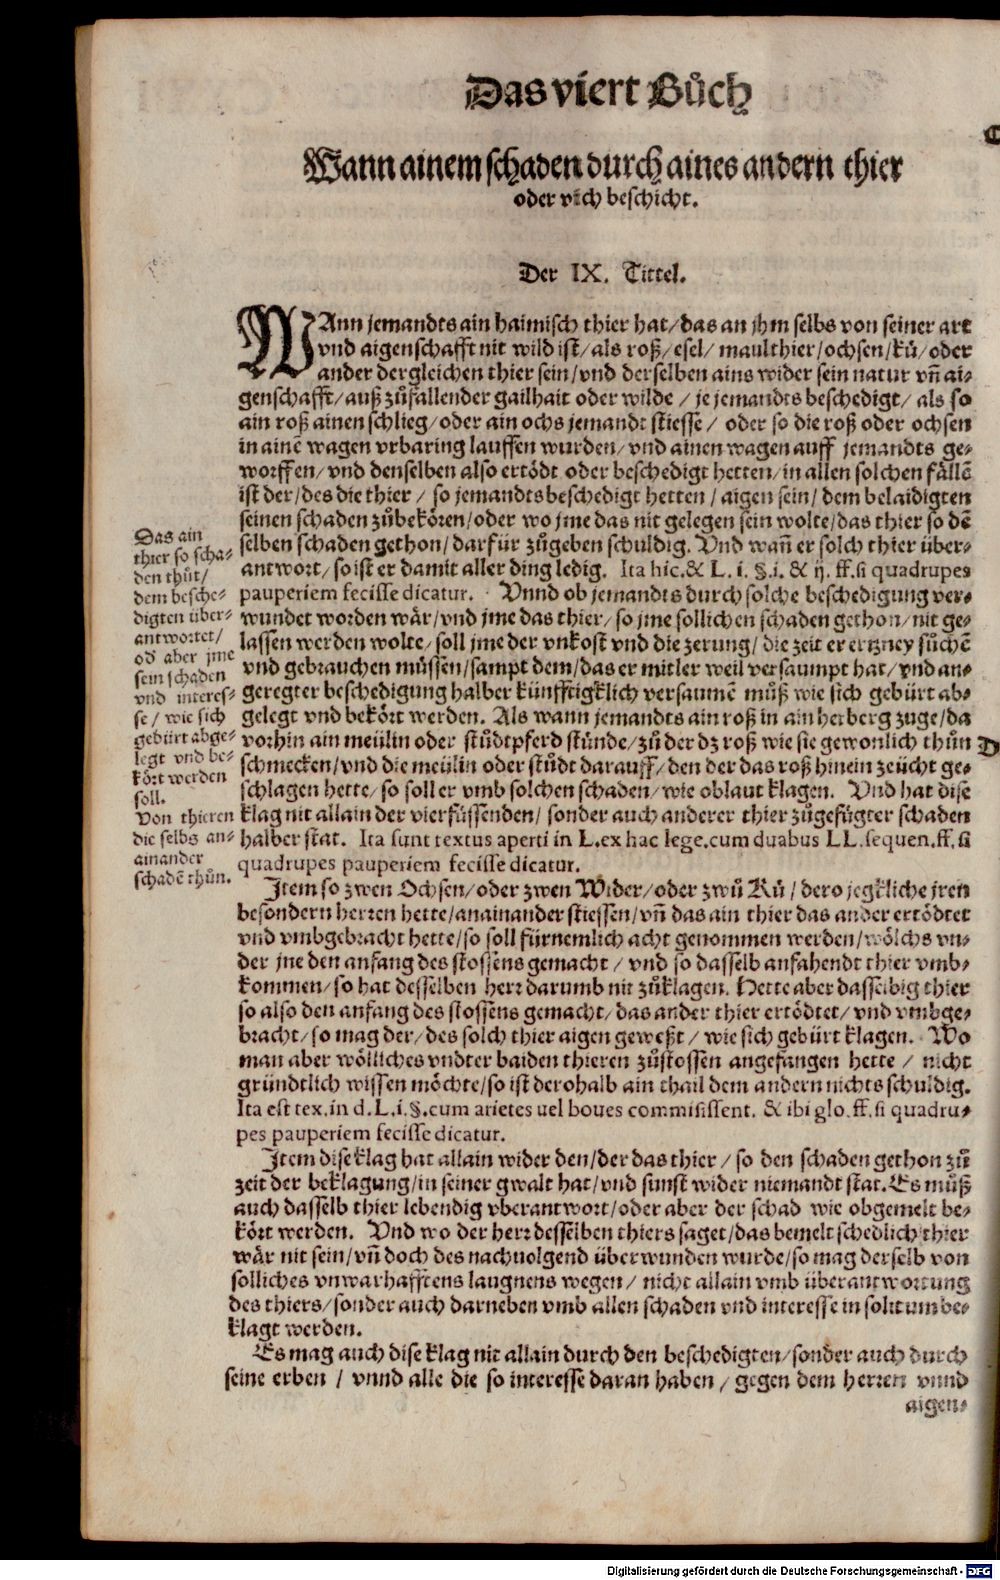 Das viert Bůch
Wann ainem schaden durch aines andern thier
oder vich beschicht.
Der IX. Tittel.
WAnn jemandts ain haimisch thier hat/das an jhm selbs von seiner art
vnd aigenschafft nit wild ist/als roß/esel/maulthier/ochsen/kü/oder
ander dergleichen thier sein/vnd derselben ains wider sein natur vñ ai-
genschafft/auß zůfallender gailhait oder wilde/je jemandts beschedigt/als so
ain roß ainen schlieg/oder ain ochs jemandt stiesse/oder so die roß oder ochsen
in ainē wagen vrbaring lauffen wurden/vnd ainen wagen auff jemandts ge-
worffen/vnd denselben also ertödt oder beschedigt hetten/in allen solchen fällē
ist der/des die thier/so jemandts beschedigt hetten/aigen sein/dem belaidigten
seinen schaden zůbekören/oder wo jme das nit gelegen sein wolte/das thier so dē
selben schaden gethon/darfür zůgeben schuldig. Vnd wañ er solch thier über-
antwort/so ist er damit aller ding ledig. Ita hic.& L. i. §.i. & ij. ff.si quadrupes
pauperiem fecisse dicatur. Vnnd ob jemandts durch solche beschedigung ver-
wundet worden wär/vnd jme das thier/so jme sollichen schaden gethon/nit ge-
lassen werden wolte/soll jme der vnkost vnd die zerung/die zeit er ertzney sůchē
vnd gebrauchen müssen/sampt dem/das er mitler weil versaumpt hat/vnd an-
geregter beschedigung halber künfftigklich versaumē můß wie sich gebürt ab-
gelegt vnd bekört werden. Als wann jemandts ain roß in ain herberg zuge/da
vorhin ain meülin oder stůdtpferd stünde/zů der dz roß wie sie gewonlich thůn
schmecken/vnd die meülin oder stůdt darauff/den der das roß hinein zeücht ge-
schlagen hette/so soll er vmb solchen schaden/wie oblaut klagen. Vnd hat dise
klag nit allain der vierfüssenden/sonder auch anderer thier zůgefügter schaden
halber stat. Ita sunt textus aperti in L.ex hac lege.cum duabus LL.sequen.ff.si
quadrupes pauperiem fecisse dicatur.
Das ain
thier so scha-
den thůt/
dem besche-
digten über-
antwortet/
od aber jme
sein schaden
vnd interes-
se/wie sich
gebürt abge-
legt vnd be-
kört werden
soll.
Von thieren
die selbs an-
ainander
schadē thůn.
Jtem so zwen Ochsen/oder zwen Wider/oder zwů Kü/dero jegkliche jren
besondern herren hette/anainander stiessen/vñ das ain thier das ander ertödtet
vnd vmbgebracht hette/so soll fürnemlich acht genommen werden/wölchs vn-
der jne den anfang des stossens gemacht/vnd so dasselb anfahendt thier vmb-
kommen/so hat desselben herr darumb nit zůklagen. Hette aber dasselbig thier
so also den anfang des stossens gemacht/das ander thier ertödtet/vnd vmbge-
bracht/so mag der/des solch thier aigen geweßt/wie sich gebürt klagen. Wo
man aber wölliches vndter baiden thieren zůstossen angefangen hette/nicht
gründtlich wissen möchte/so ist derohalb ain thail dem andern nichts schuldig.
Ita est tex.in d.L.i.§.cum arietes uel boues commisissent. & ibi glo.ff.si quadru-
pes pauperiem fecisse dicatur.
Jtem dise klag hat allain wider den/der das thier/so den schaden gethon zů
zeit der beklagung/in seiner gwalt hat/vnd sunst wider niemandt stat. Es můß
auch dasselb thier lebendig vberantwort/oder aber der schad wie obgemelt be-
kört werden. Vnd wo der herr desselben thiers saget/das bemelt schedlich thier
wär nit sein/vñ doch des nachuolgend überwunden wurde/so mag derselb von
solliches vnwarhafftens laugnens wegen/nicht allain vmb überantwortung
des thiers/sonder auch darneben vmb allen schaden vnd interesse in solitum be-
klagt werden.
Es mag auch dise klag nit allain durch den beschedigten/sonder auch durch
seine erben/vnnd alle die so interesse daran haben/gegen dem herren vnnd
aigen-
Digitalisierung gefördert durch die Deutsche Forschungsgemeinschaft - DFG